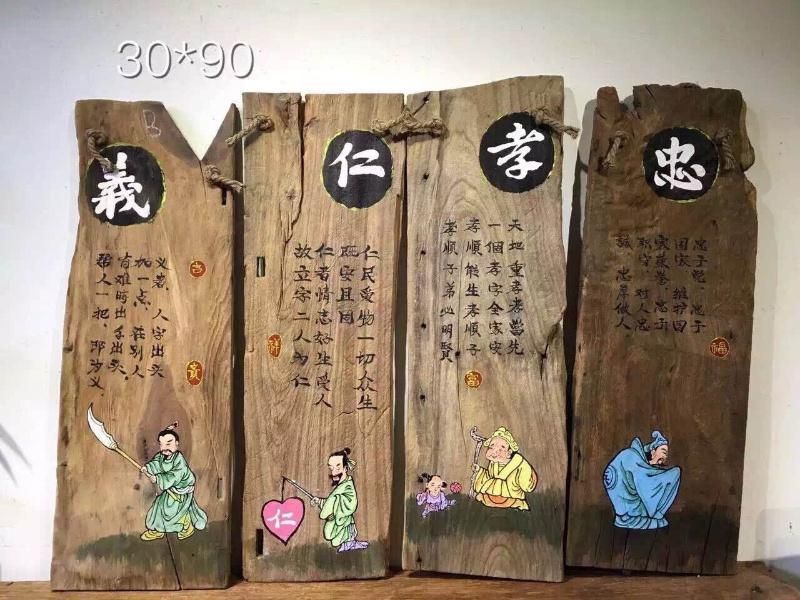 30*90
忠
忠于党、忠于
国家 维护国
家荣誉、忠于
职守 对人忠
誠、忠厚做人、
福
孝
天地重孝孝當先
一個孝字全家安
孝順能生孝順子
孝順子弟必明賢
富
仁
仁民爱物一切众生
既安且固
仁者情志好生爱人
故立字二人为仁
祥
仁
B
義
义者、人字出头
加一点、在别人
有难时出手出头、
帮人一把、即为义、
吉
貴